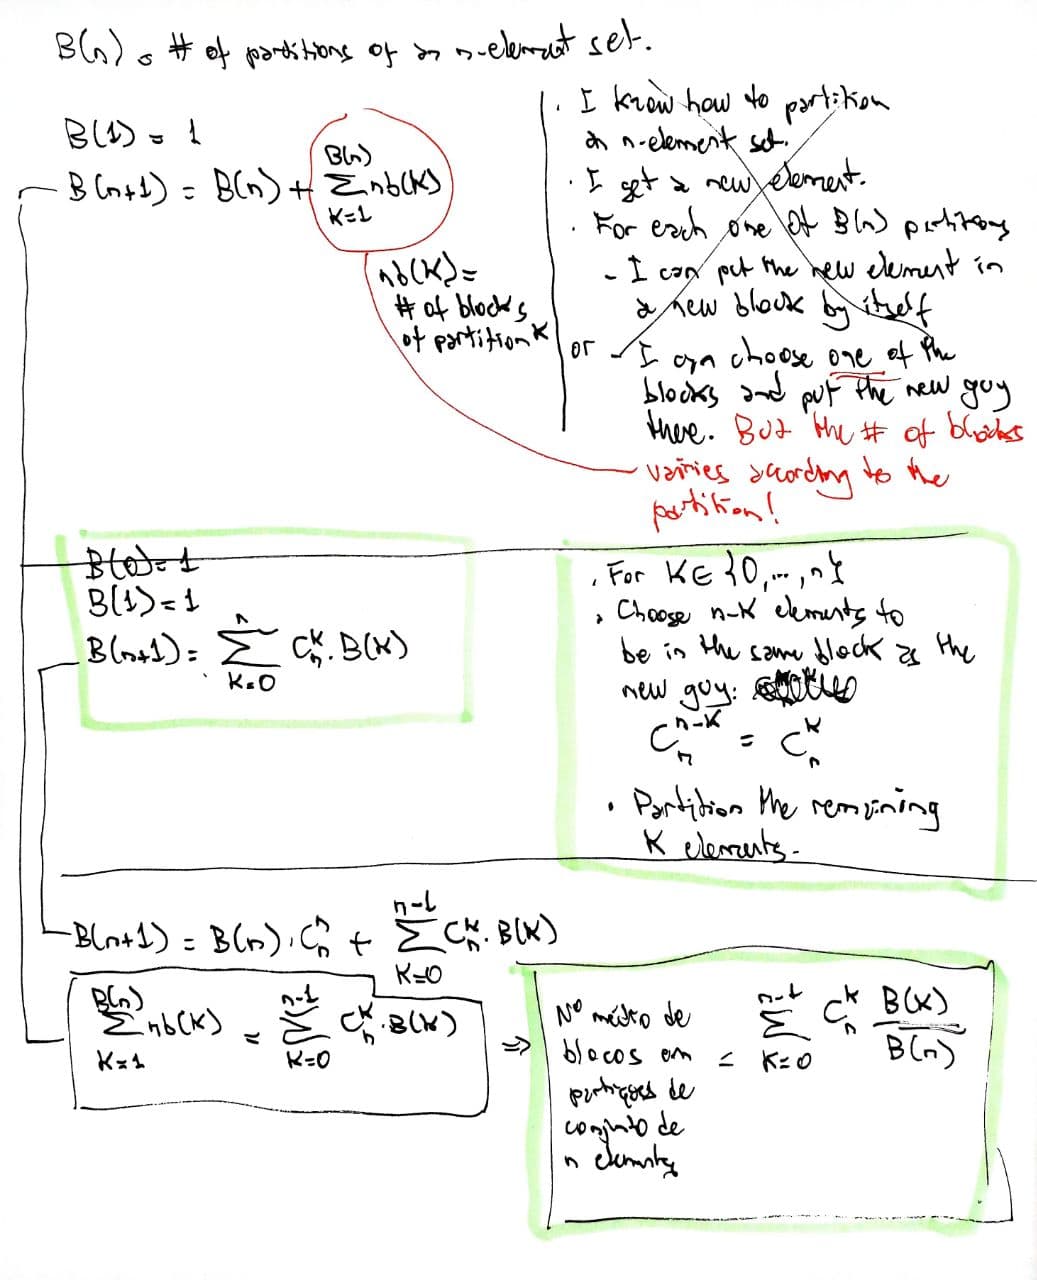 B(n) = # of partitions of an n-element set.
B(1) = 1
B(n+1) = B(n) + \sum_{K=1}^{B(n)} nb(K)
nb(K) =
# of blocks
of partition K
. I know how to partition
an n-element set.
. I get a new element.
. For each one of B(n) partitions
- I can put the new element in
a new block by itself
or - I can choose one of the
blocks and put the new guy
there. But the # of blocks
varies according to the
partition!
B(0)=1
B(1)=1
B(n+1) = \sum_{K=0}^{n} C_n^K . B(K)
. For K ∈ {0,...,n}
. Choose n-K elements to
be in the same block as the
new guy:
C_n^{n-K} = C_n^K
. Partition the remaining
K elements.
B(n+1) = B(n) . C_n^n + \sum_{K=0}^{n-1} C_n^K . B(K)
\sum_{K=1}^{B(n)} nb(K) = \sum_{K=0}^{n-1} C_n^K . B(K)
⇒
Nº médio de
blocos em
partições de
conjunto de
n elementos
= \sum_{K=0}^{n-1} C_n^K \frac{B(K)}{B(n)}